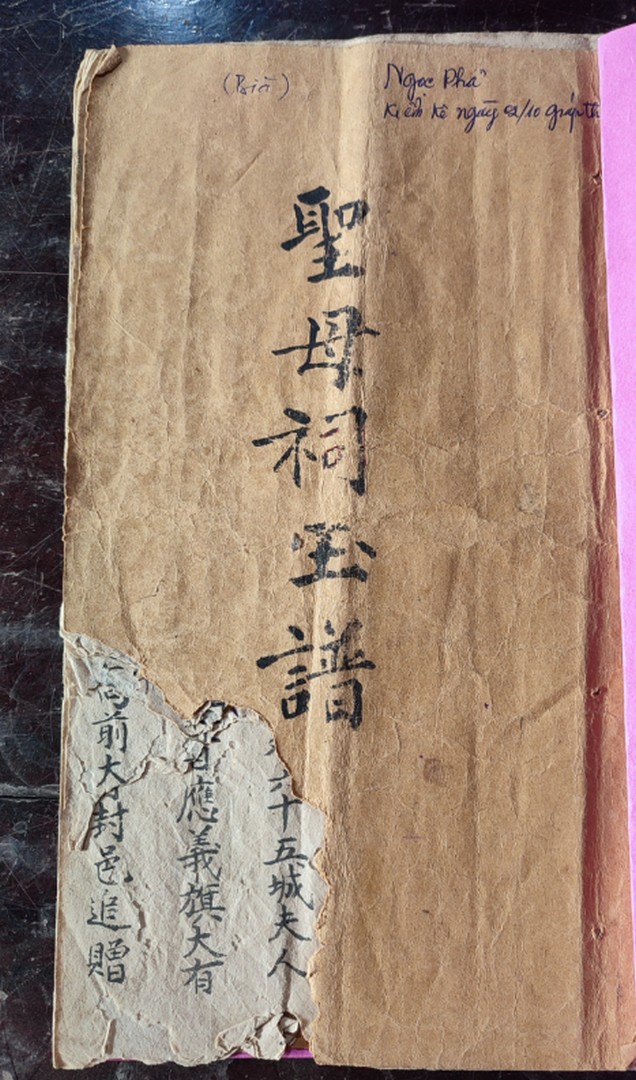 (Bìa)
Ngọc Phả
Kiểm kê ngày 02/10 giáp
聖母祠玉譜
六十五城夫人
應義旗大有
前大封邑追贈